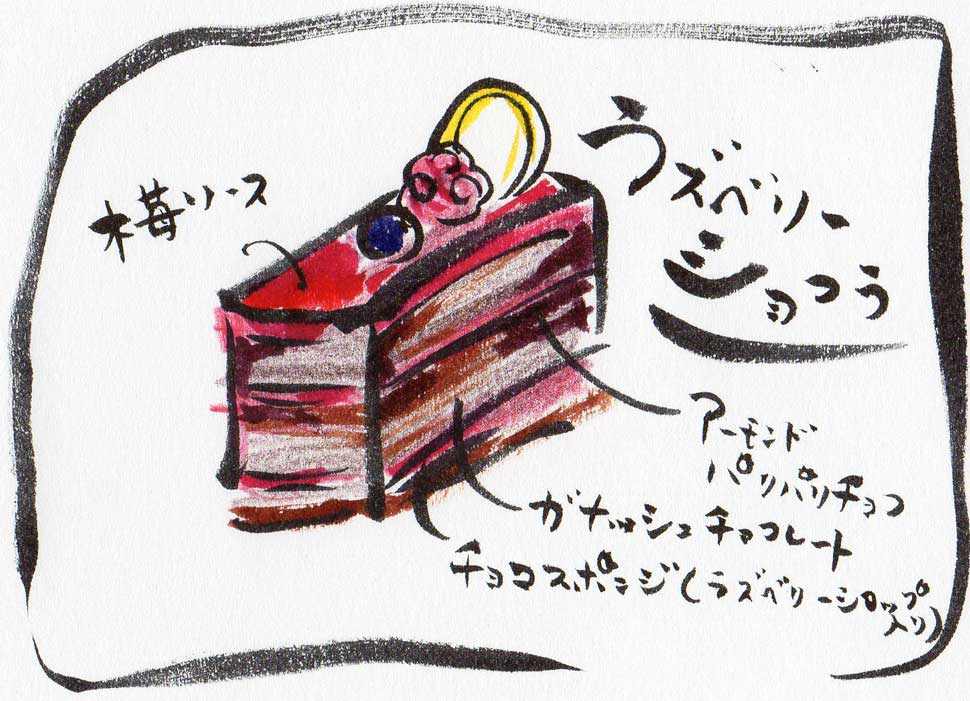 らズベリー
ショコラ
木苺ソース
アーモンド
パリパリチョコ
ガナッシュチョコレート
チョコスポンジ(ラズベリーシロップ
入り)